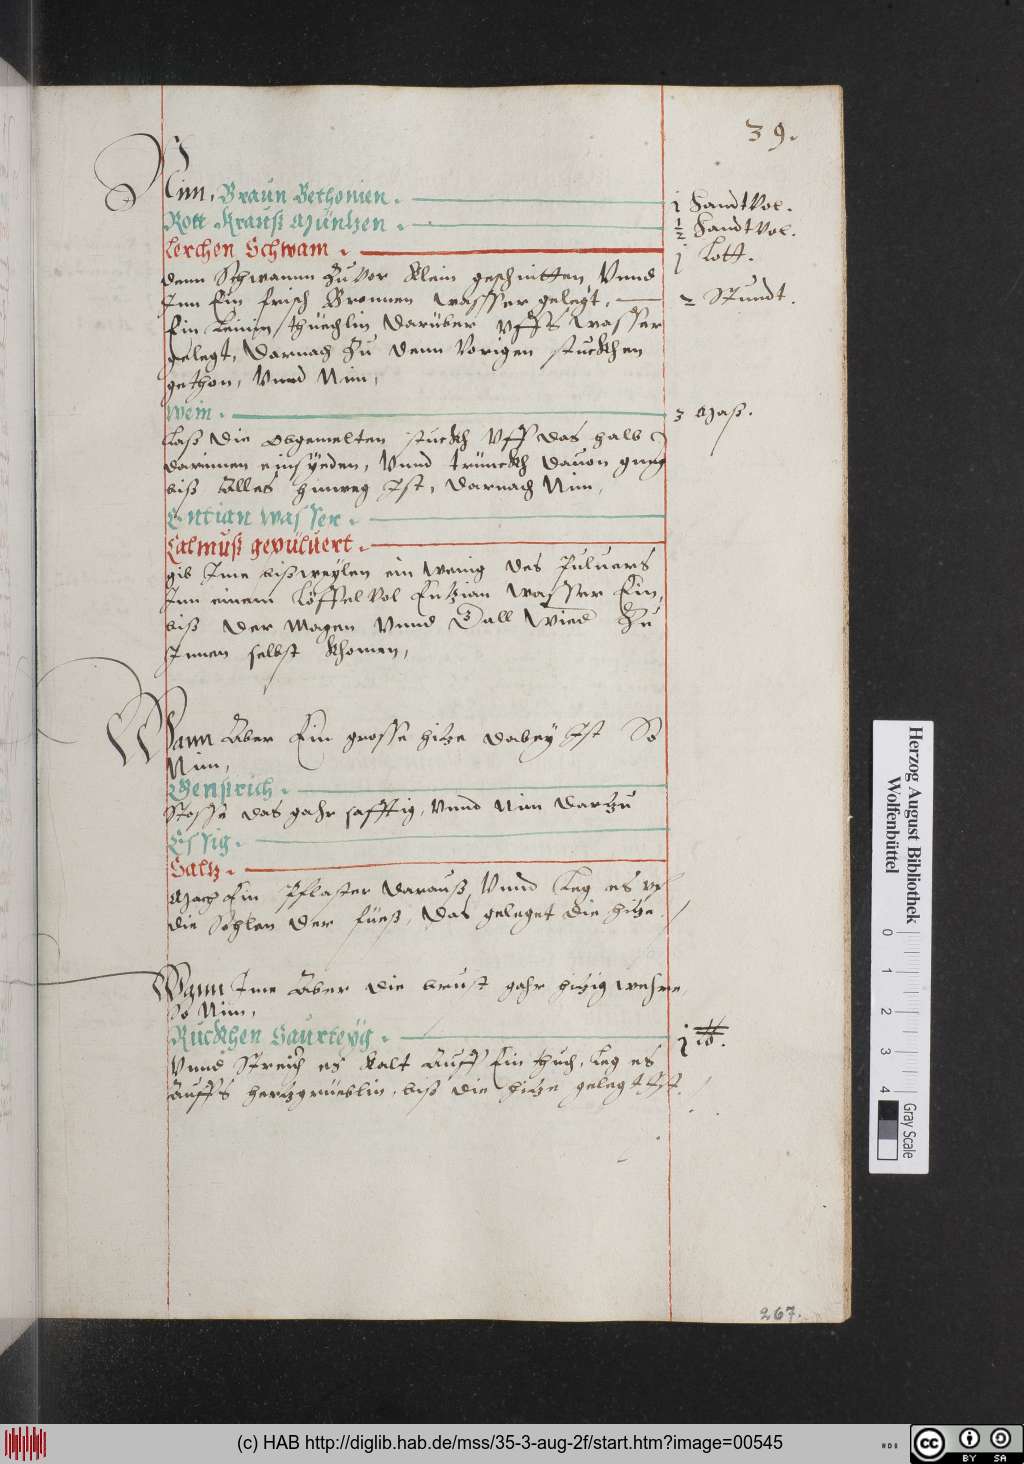 39.
Nim, Braun Bethonien. j Handt Vol.
Rott Krauß Müntzen. ½ Handt Vol.
Lerchen Schwam. j Lott.
denn Schwamm Zuuor klein geschnitten, Vnnd
Inn Ein frisch Bronnen wasser gelegt, 2 Stundt.
Ein Leinin thüechlin darüber vffs wasser
gelegt, Darnach Zu denn Vorigen stuckhen
gethon, Vnnd Nim,
Wein. 3 Maß.
Laß die obgemelten stuckh Vff das halb
darinnen einsÿeden, Vnnd trünckh dauon gnug
biß Alles hinweg Ist, darnach Nim,
Entian wasser.
Calmuß gepuluert.
gib Ime bißweÿlen ein wenig des Puluers
Inn einem Löffel Vol Entzian wasser Ein,
biß der Magen Vnnd Zu
Innen selbst khomen,
Wann Aber Ein grosse hitze dabeÿ Ist So
Nim,
Gensrich.
Stosse das gahr safftig, Vnnd Nim dartzu
Essig.
Saltz.
Mach Ein Pflaster darauß Vnnd Leg es vf
die Sohlen der füeß, das geleget die hitze.
Wann Ime Aber die brust gahr hitzig wehre,
so Nim,
Ruckhen Saurteÿg. j lb.
Vnnd Streich es kalt Auff Ein thuch, Leg es
Auffs hertzgrüeblin, biß die hitze gelegt Ist.
267.
Herzog August Bibliothek
Wolfenbüttel
0 1 2 3 4
Gray Scale
(c) HAB http://diglib.hab.de/mss/35-3-aug-2f/start.htm?image=00545
cc BY SA